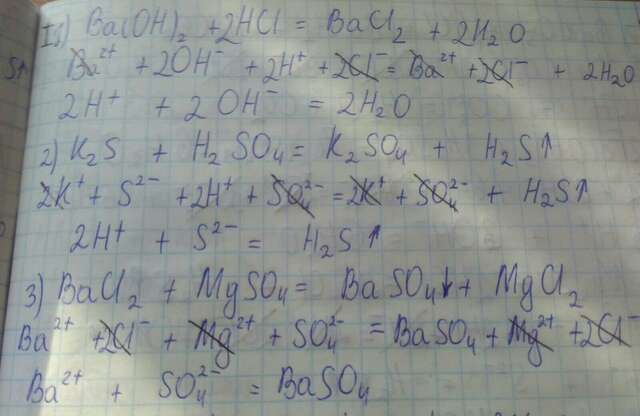 I 1) Ba(OH)₂ + 2HCl = BaCl₂ + 2H₂O
Ba²⁺ + 2OH⁻ + 2H⁺ + 2Cl⁻ = Ba²⁺ + 2Cl⁻ + 2H₂O
2H⁺ + 2OH⁻ = 2H₂O
2) K₂S + H₂SO₄ = K₂SO₄ + H₂S↑
2K⁺ + S²⁻ + 2H⁺ + SO₄²⁻ = 2K⁺ + SO₄²⁻ + H₂S↑
2H⁺ + S²⁻ = H₂S↑
3) BaCl₂ + MgSO₄ = BaSO₄↓ + MgCl₂
Ba²⁺ + 2Cl⁻ + Mg²⁺ + SO₄²⁻ = BaSO₄ + Mg²⁺ + 2Cl⁻
Ba²⁺ + SO₄²⁻ = BaSO₄